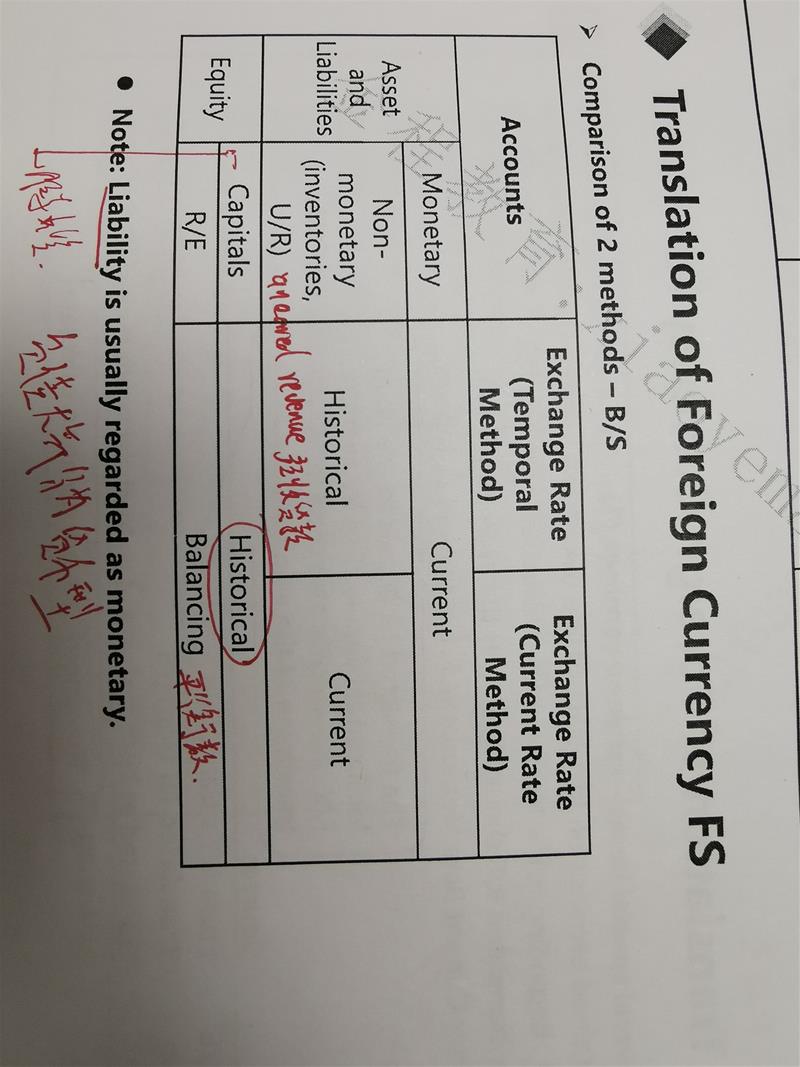 Translation of Foreign Currency FS
Comparison of 2 methods – B/S
Accounts
Exchange Rate
(Temporal
Method)
Exchange Rate
(Current Rate
Method)
Asset
and
Liabilities
Monetary
Current
Non-
monetary
(inventories,
U/R)
Historical
Current
revenue
Equity
Capitals
Historical
R/E
Balancing
Note: Liability is usually regarded as monetary.
金程教育